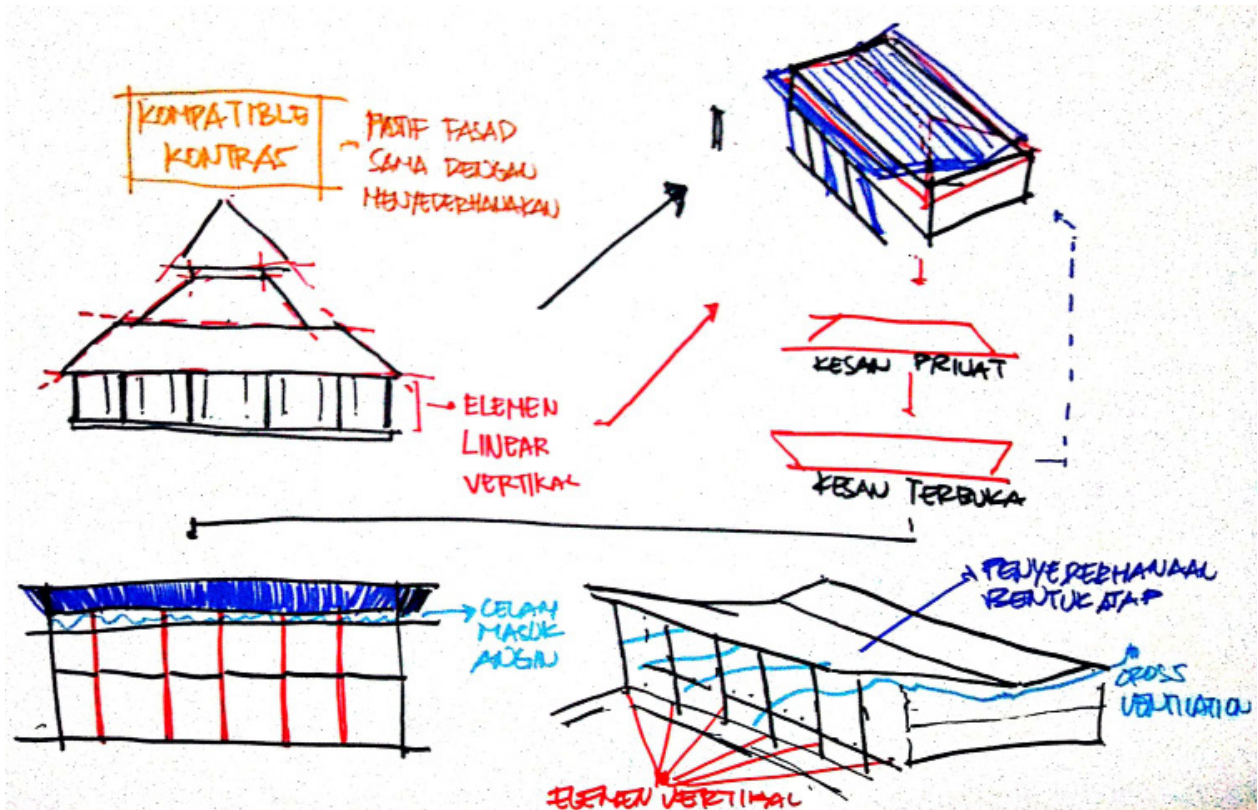 KOMPATIBLE
KONTRAS
MOTIF FASAD
SAMA DENGAN
MENYEDERHANAKAN
ELEMEN
LINEAR
VERTIKAL
KESAN PRIVAT
KESAN TERBUKA
CELAH
MASUK
ANGIN
PENYEDERHANAAN
BENTUK ATAP
CROSS
VENTILATION
ELEMEN VERTIKAL